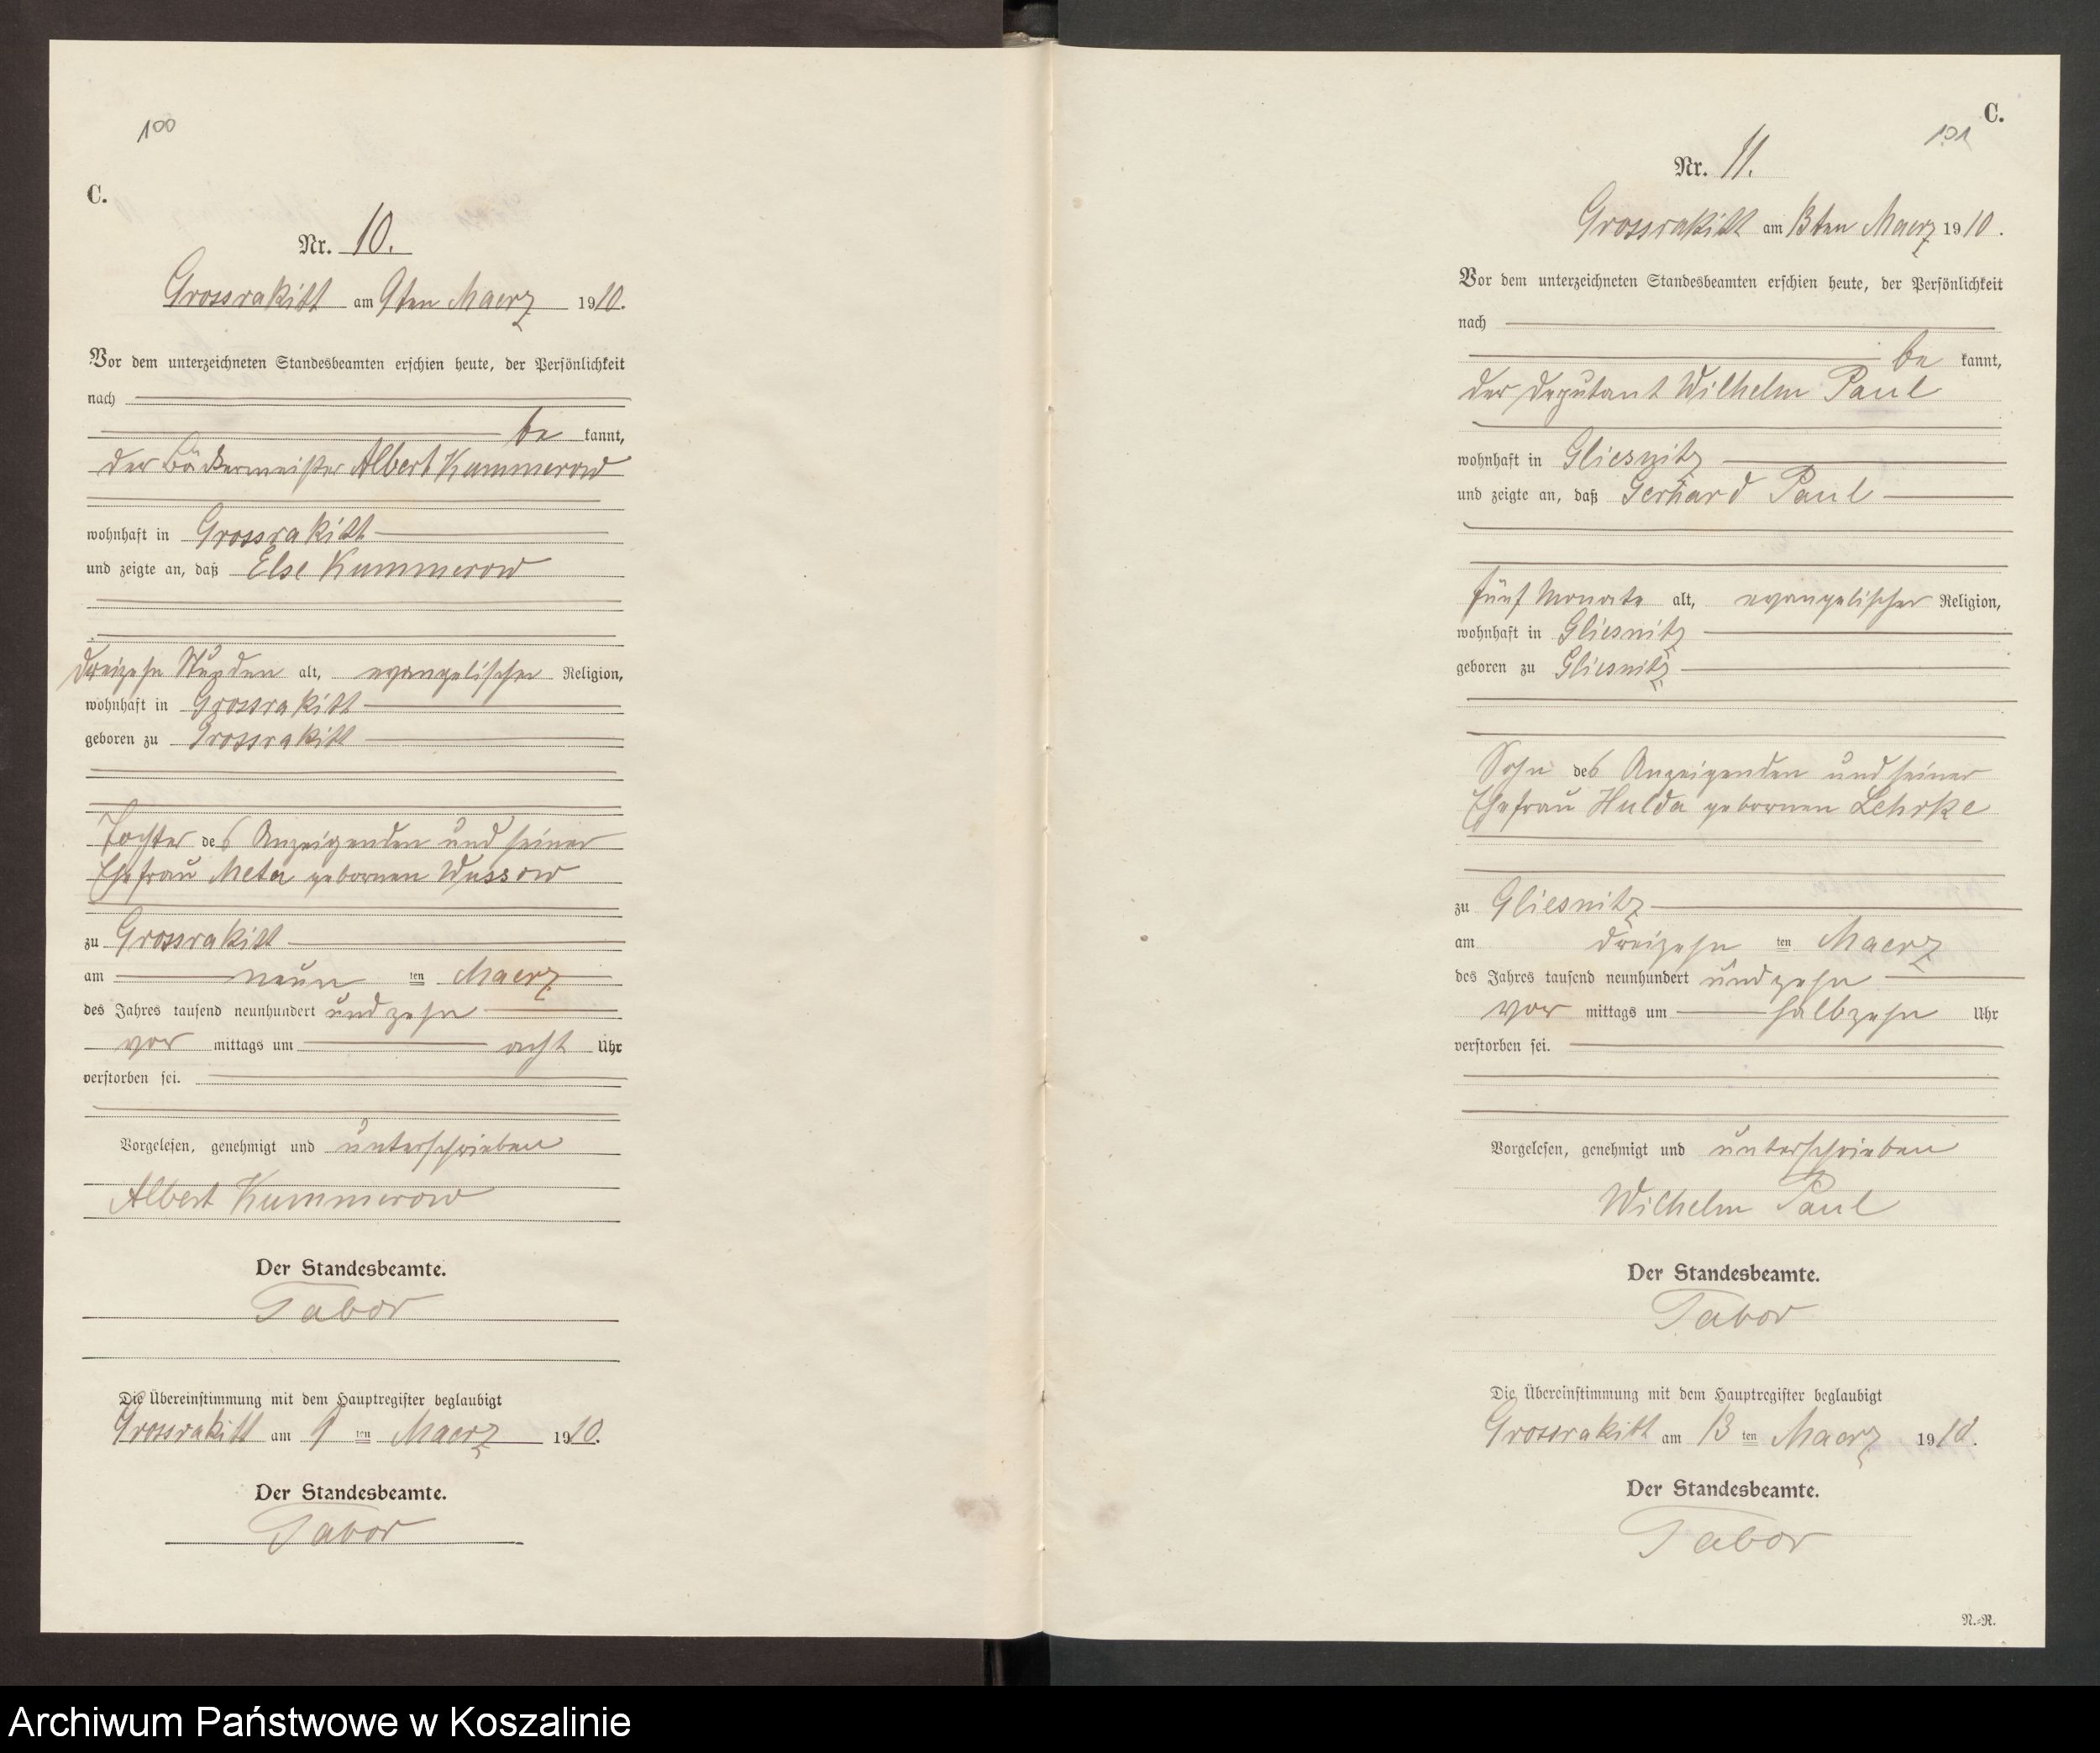 100
C.
Nr. 10.
Grossrakitt am 9ten Maerz 1910.
Vor dem unterzeichneten Standesbeamten erschien heute, der Persönlichkeit
nach
be kannt,
der Bäckermeister Albert Kummerow
wohnhaft in Grossrakitt
und zeigte an, daß Else Kummerow
dreizehn Stunden alt, evangelischer Religion,
wohnhaft in Grossrakitt
geboren zu Grossrakitt
Tochter des Anzeigenden und seiner
Ehefrau Meta gebornen Wussow
zu Grossrakitt
am neun ten Maerz
des Jahres tausend neunhundert und zehn
vor mittags um acht Uhr
verstorben sei.
Vorgelesen, genehmigt und unterschrieben
Albert Kummerow
Der Standesbeamte.
Tabor
Die Übereinstimmung mit dem Hauptregister beglaubigt
Grossrakitt am 9 ten Maerz 1910.
Der Standesbeamte.
Tabor
C.
101
Nr. 11.
Grossrakitt am 13ten Maerz 1910.
Vor dem unterzeichneten Standesbeamten erschien heute, der Persönlichkeit
nach
be kannt,
der Deputant Wilhelm Paul
wohnhaft in Gliesnitz
und zeigte an, daß Gerhard Paul
fünf Monate alt, evangelischer Religion,
wohnhaft in Gliesnitz
geboren zu Gliesnitz
Sohn des Anzeigenden und seiner
Ehefrau Hulda gebornen Lehrke
zu Gliesnitz
am dreizehn ten Maerz
des Jahres tausend neunhundert und zehn
vor mittags um halbzehn Uhr
verstorben sei.
Vorgelesen, genehmigt und unterschrieben
Wilhelm Paul
Der Standesbeamte.
Tabor
Die Übereinstimmung mit dem Hauptregister beglaubigt
Grossrakitt am 13 ten Maerz 1910.
Der Standesbeamte.
Tabor
N.-R.
Archiwum Państwowe w Koszalinie